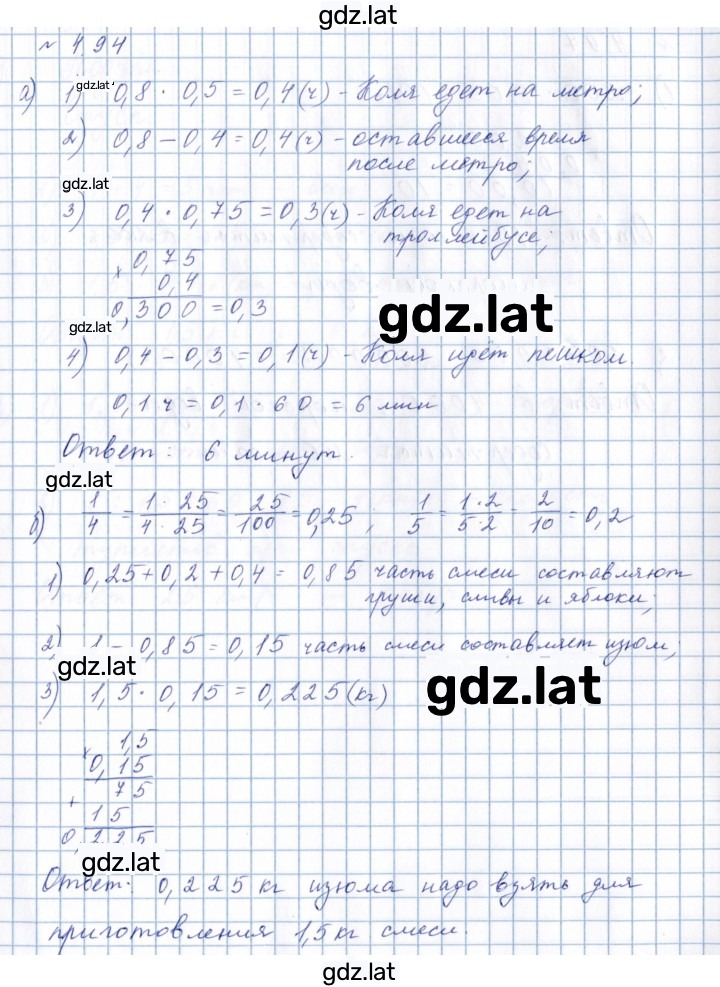 gdz.lat
№ 4.94
а) 1) 0,8 · 0,5 = 0,4 (ч) - Коля едет на метро;
gdz.lat
2) 0,8 - 0,4 = 0,4 (ч) - оставшееся время
после метро;
gdz.lat
3) 0,4 · 0,75 = 0,3 (ч) - Коля едет на
троллейбусе;
× 0,75
0,4
0,300 = 0,3
gdz.lat
gdz.lat
4) 0,4 - 0,3 = 0,1 (ч) - Коля идёт пешком.
0,1 ч = 0,1 · 60 = 6 мин
Ответ: 6 минут.
gdz.lat
б) 1/4 = 1·25/4·25 = 25/100 = 0,25; 1/5 = 1·2/5·2 = 2/10 = 0,2
1) 0,25 + 0,2 + 0,4 = 0,85 часть смеси составляют
груши, сливы и яблоки;
2) 1 - 0,85 = 0,15 часть смеси составляет изюм;
gdz.lat
3) 1,5 · 0,15 = 0,225 (кг)
gdz.lat
× 1,5
0,15
+ 75
15
0,225
gdz.lat
Ответ: 0,225 кг изюма надо взять для
приготовления 1,5 кг смеси.
gdz.lat